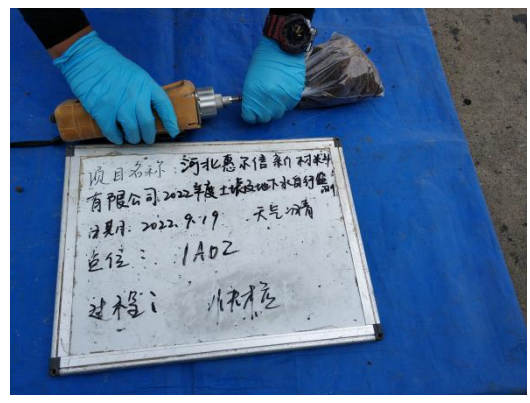 项目名称: 河北惠尔信新材料
有限公司2022年度土壤及地下水自行监测
日期: 2022.9.19 天气: 晴
点位: 1A02
过程: 快检